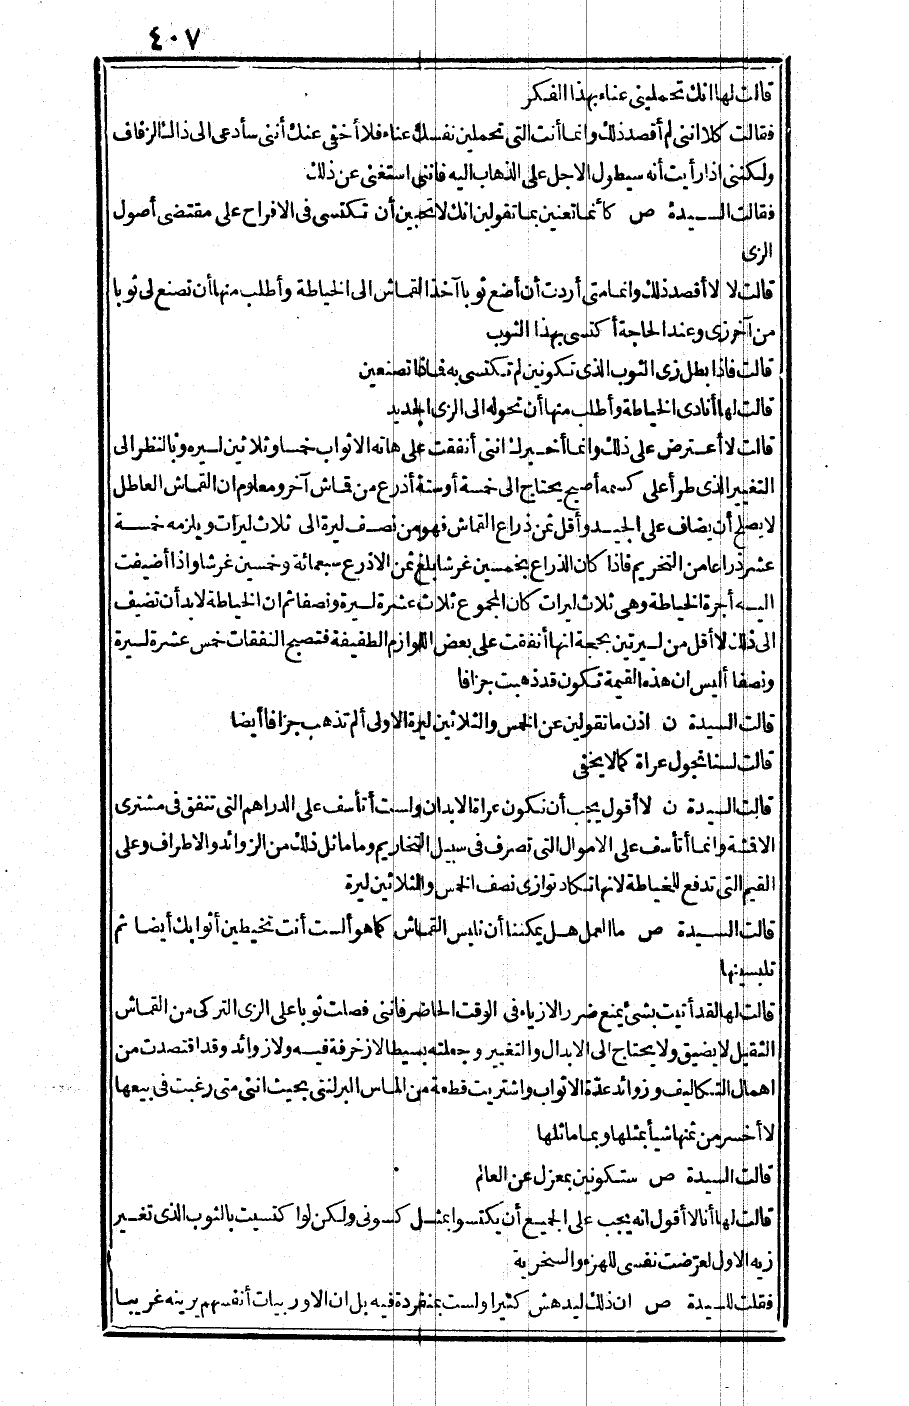 ٤٠٧
قالت لها انك تحمليني عناء بهذا الفكر
فقالت كلا انني لم أقصد ذلك وانما أنت التي تحملين نفسك عناء فلا أخفي عنك أنني سأدعى الى ذلك الزفاف
ولكنني اذا رأيت أنه سيطول الاجل على الذهاب اليه فانني استغني عن ذلك
فقالت السيدة ص كأنما تعنين بما تقولين انك لا تحبين أن تكتسي في الافراح على مقتضى أصول
الزي
قالت لا لا أقصد ذلك وانما متى أردت أن أضع ثوبا آخذ القماش الى الخياطة وأطلب منها أن تصنع لي ثوبا
من آخر زي وعند الحاجة أكتسي بهذا الثوب
قالت فاذا بطل زي الثوب الذي تكونين لم تكتسي به فماذا تصنعين
قالت لها أنادي الخياطة وأطلب منها أن تحوله الى الزي الجديد
قالت لا أعترض على ذلك وانما أخبرك انني أنفقت على هاته الاثواب خمسا وثلاثين ليره وبالنظر الى
التغيير الذي طرأ على كسمه أصبح يحتاج الى خمسة أو ستة أذرع من قماش آخر ومعلوم ان القماش العاطل
لا يصلح أن يضاف على الجيد وأقل ثمن ذراع القماش فهو من نصف ليرة الى ثلاث ليرات ويلزمه خمسة
عشر ذراعا من التخريم فاذا كان الذراع بخمسين غرشا بلغ ثمن الاذرع سبعمائة وخمسين غرشا واذا أضيفت
اليه أجرة الخياطة وهي ثلاث ليرات كان المجموع ثلاث عشرة ليرة ونصفا ثم ان الخياطة لابد أن تضيف
الى ذلك لا أقل من ليرتين بحجة انها أنفقت على بعض اللوازم الطفيفة فتصبح النفقات خمس عشرة ليرة
ونصفا أليس ان هذه القيمة تكون قد ذهبت جزافا
قالت السيدة ن اذن ما تقولين عن الخمس والثلاثين ليرة الاولى ألم تذهب جزافا أيضا
قالت لسنا نجول عراة كما لا يخفى
قالت السيدة ن لا أقول يجب أن نكون عراة الابدان ولست أتأسف على الدراهم التي تنفق في مشترى
الاقمشة وانما أتأسف على الاموال التي تصرف في سبيل التخاريم وما ماثل ذلك من الزوائد والاطراف وعلى
القيم التي تدفع للخياطة لانها تكاد توازي نصف الخمس والثلاثين ليرة
قالت السيدة ص ما العمل هل يمكننا أن نلبس القماش كما هو ألست أنت تخيطين أثوابك أيضا ثم
تلبسينها
قالت لها لقد أتيت بشئ يمنع ضرر الازياء في الوقت الحاضر فانني فصلت ثوبا على الزي التركي من القماش
الثقيل لا يضيق ولا يحتاج الى الابدال والتغيير وجعلته بسيطا لا زخرفة فيه ولا زوائد وقد اقتصدت من
اهمال التكاليف وزوائد عدة الاثواب واشتريت قطعة من الماس البرلنتي بحيث انني متى رغبت في بيعها
لا أخسر من ثمنها شيأ بمثلها وبما ماثلها
قالت السيدة ص ستكونين بمعزل عن العالم
قالت لها أنا لا أقول انه يجب على الجميع أن يكتسوا بمثل كسوتي ولكن لو اكتسيت بالثوب الذي تغير
زيه الاول لعرّضت نفسي للهزء والسخرية
فقلت للسيدة ص ان ذلك ليدهش كثيرا ولست بمنفردة فيه بل ان الاوربيات أنفسهم يرينه غريبا